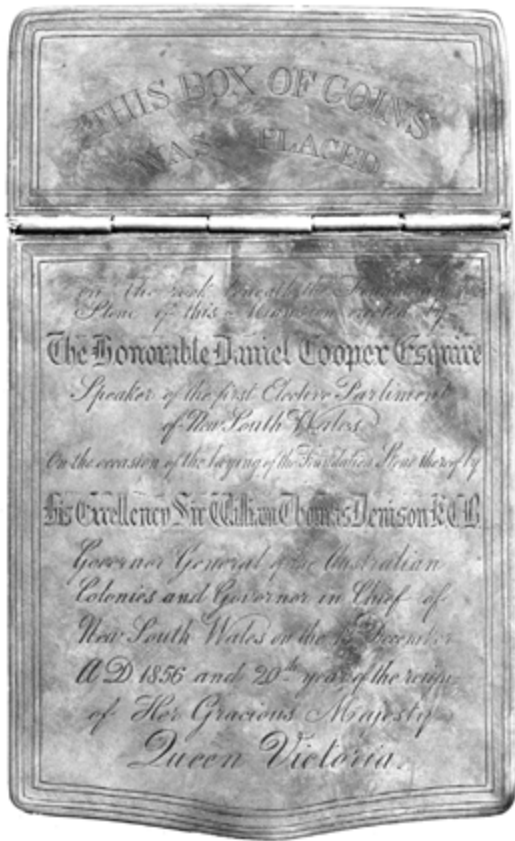 THIS BOX OF COINS
WAS PLACED
on the rock beneath the Foundation
Stone of this Mansion erected by
The Honorable Daniel Cooper Esquire
Speaker of the first Elective Parliment
of New South Wales
On the occasion of the laying of the Foundation Stone thereof by
His Excellency Sir William Thomas Denison K.C.B.
Governor General of the Australian
Colonies and Governor in Chief of
New South Wales on the December
A D 1856 and 20th year of the reign
of Her Gracious Majesty
Queen Victoria.